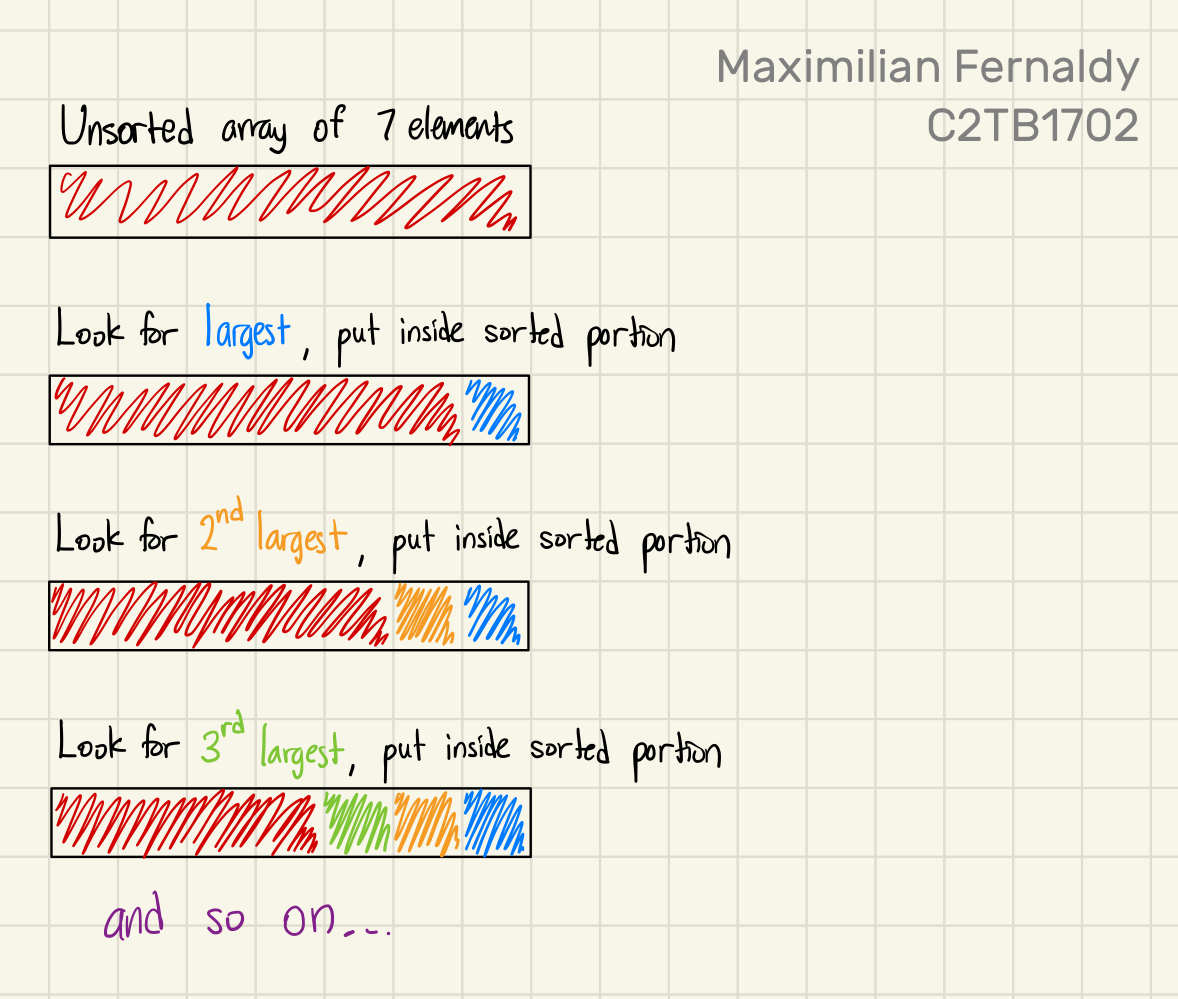 Maximilian Fernaldy
C2TB1702
Unsorted array of 7 elements
Look for largest, put inside sorted portion
Look for 2nd largest, put inside sorted portion
Look for 3rd largest, put inside sorted portion
and so on...